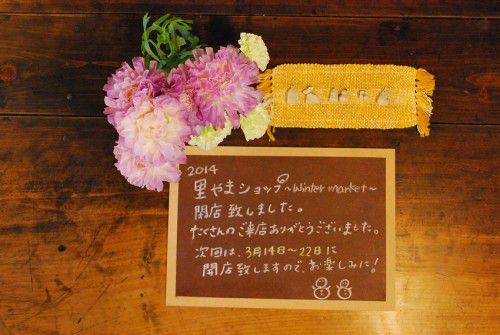 2014
里やまショップ~winter market~
閉店致しました。
たくさんのご来店ありがとうございました。
次回は、3月14日~22日に
開店致しますので、お楽しみに!